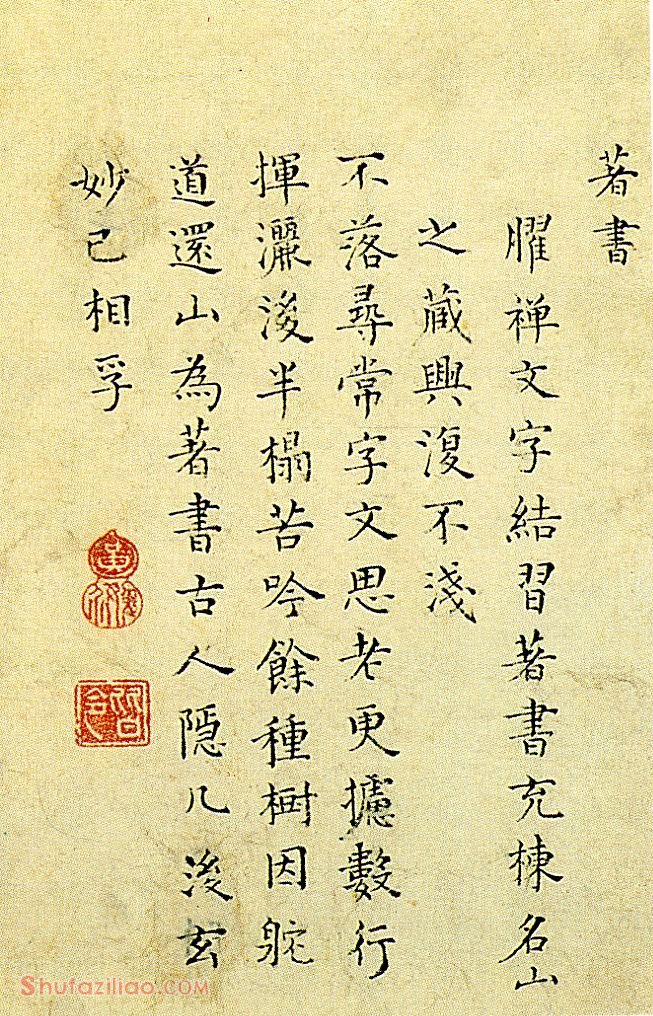 著書
臞禅文字結習著書充棟名山
之藏興復不淺
不落尋常字文思老更攄數行
揮灑後半榻苦吟餘種樹因駝
道還山為著書古人隱几後玄
妙已相孚
Shufaziliao.COM